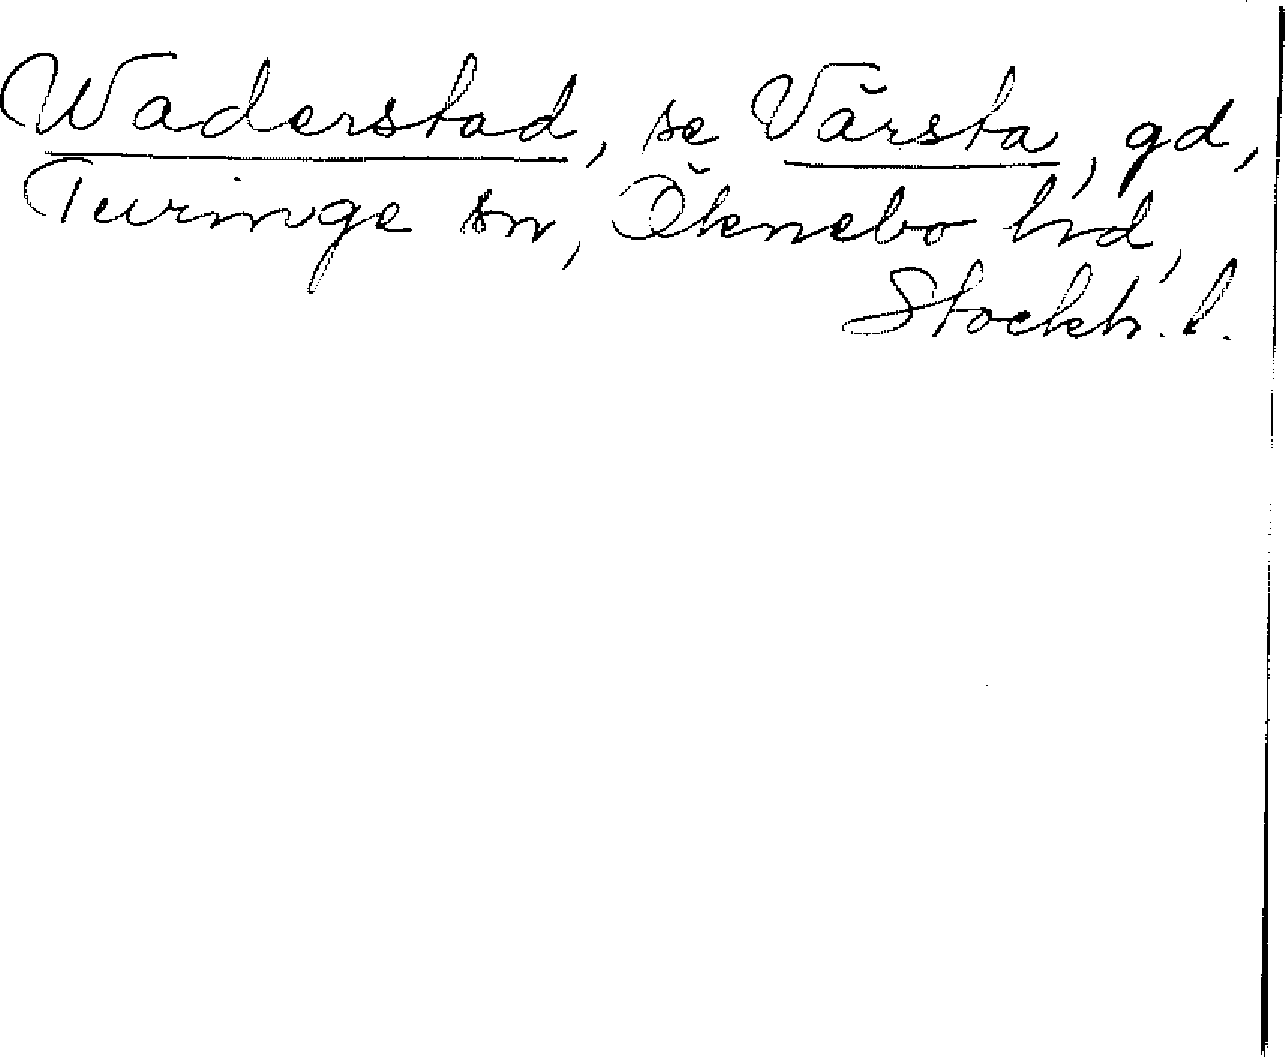 Waderstad, se Värsta, gd,
Turinge sn, Öknebo hrd,
Stockh. l.